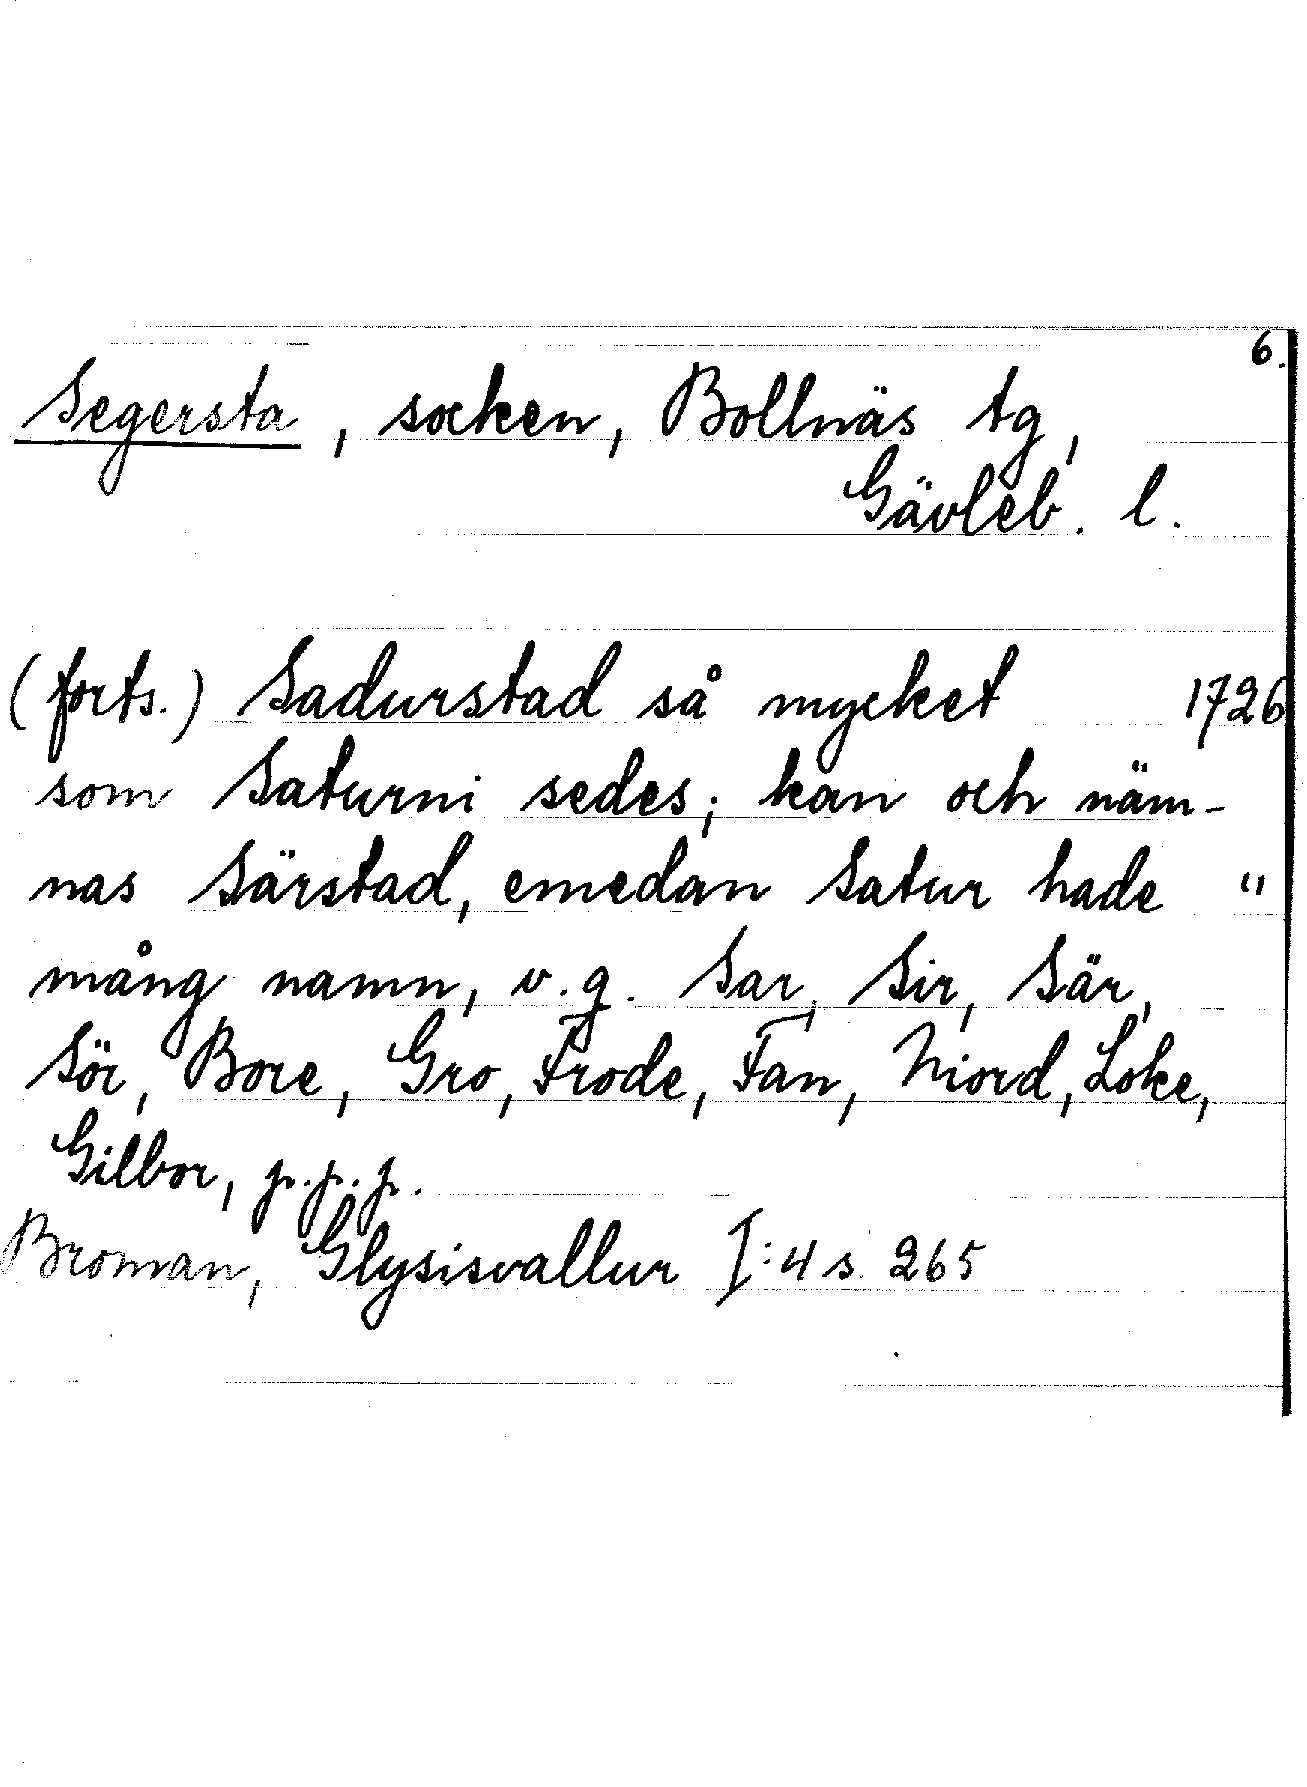 6.
Segersta, socken, Bollnäs tg,
Gävleb. l.
(forts.) Sadurstad så mycket 1726
som Saturni sedes; kan och näm-
nas Särstad, emedan Satur hade "
mång namn, v.g. Sar, Sir, Sär,
Sör, Bore, Gro, Frode, Fan, Niord, Loke,
Gilbor, p.p.p.
Broman, Glysisvallur I:4 s. 265